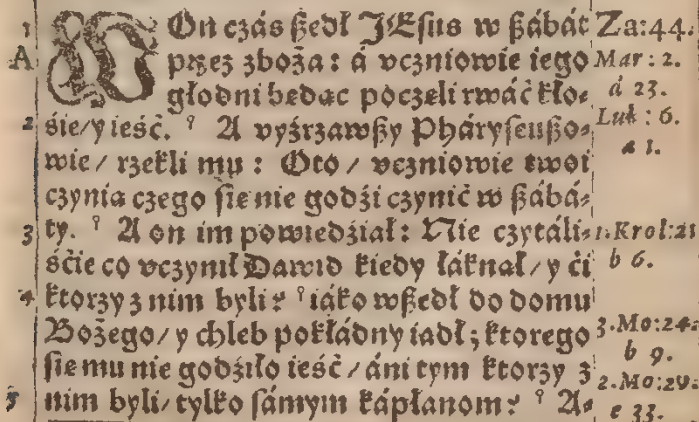 WOn czás ßedł JEſus w ßábát
przez zboża: á vczniowie iego
głodni bedac poczeli rwáć kło⸗
śie/ y ieść. ⁹ A vyźrzawßy Pháryſeußo⸗
wie/ rzekli mu: Oto/ vczniowie twoi
czynia czego ſie nie godźi czynić w ßábá⸗
ty. ⁹ A on im powiedźiał: Nie czytáli⸗
śćie co vczynił Dawid kiedy łáknał/ y ći
ktorzy z nim byli? ⁹ iáko wßedł do domu
Bożego/ y chleb pokłádny iadł; ktorego
ſie mu nie godźiło ieść/ áni tym ktorzy z
nim byli/ tylko ſámym kápłanom? ⁹ A⸗
1
A
2
3
4
5
Za:44.
Mar: 2.
d 23.
Luk: 6.
a 1.
1.Krol:21
b 6.
3.Mo:24:
b 9.
2.Mo:29:
e 33.